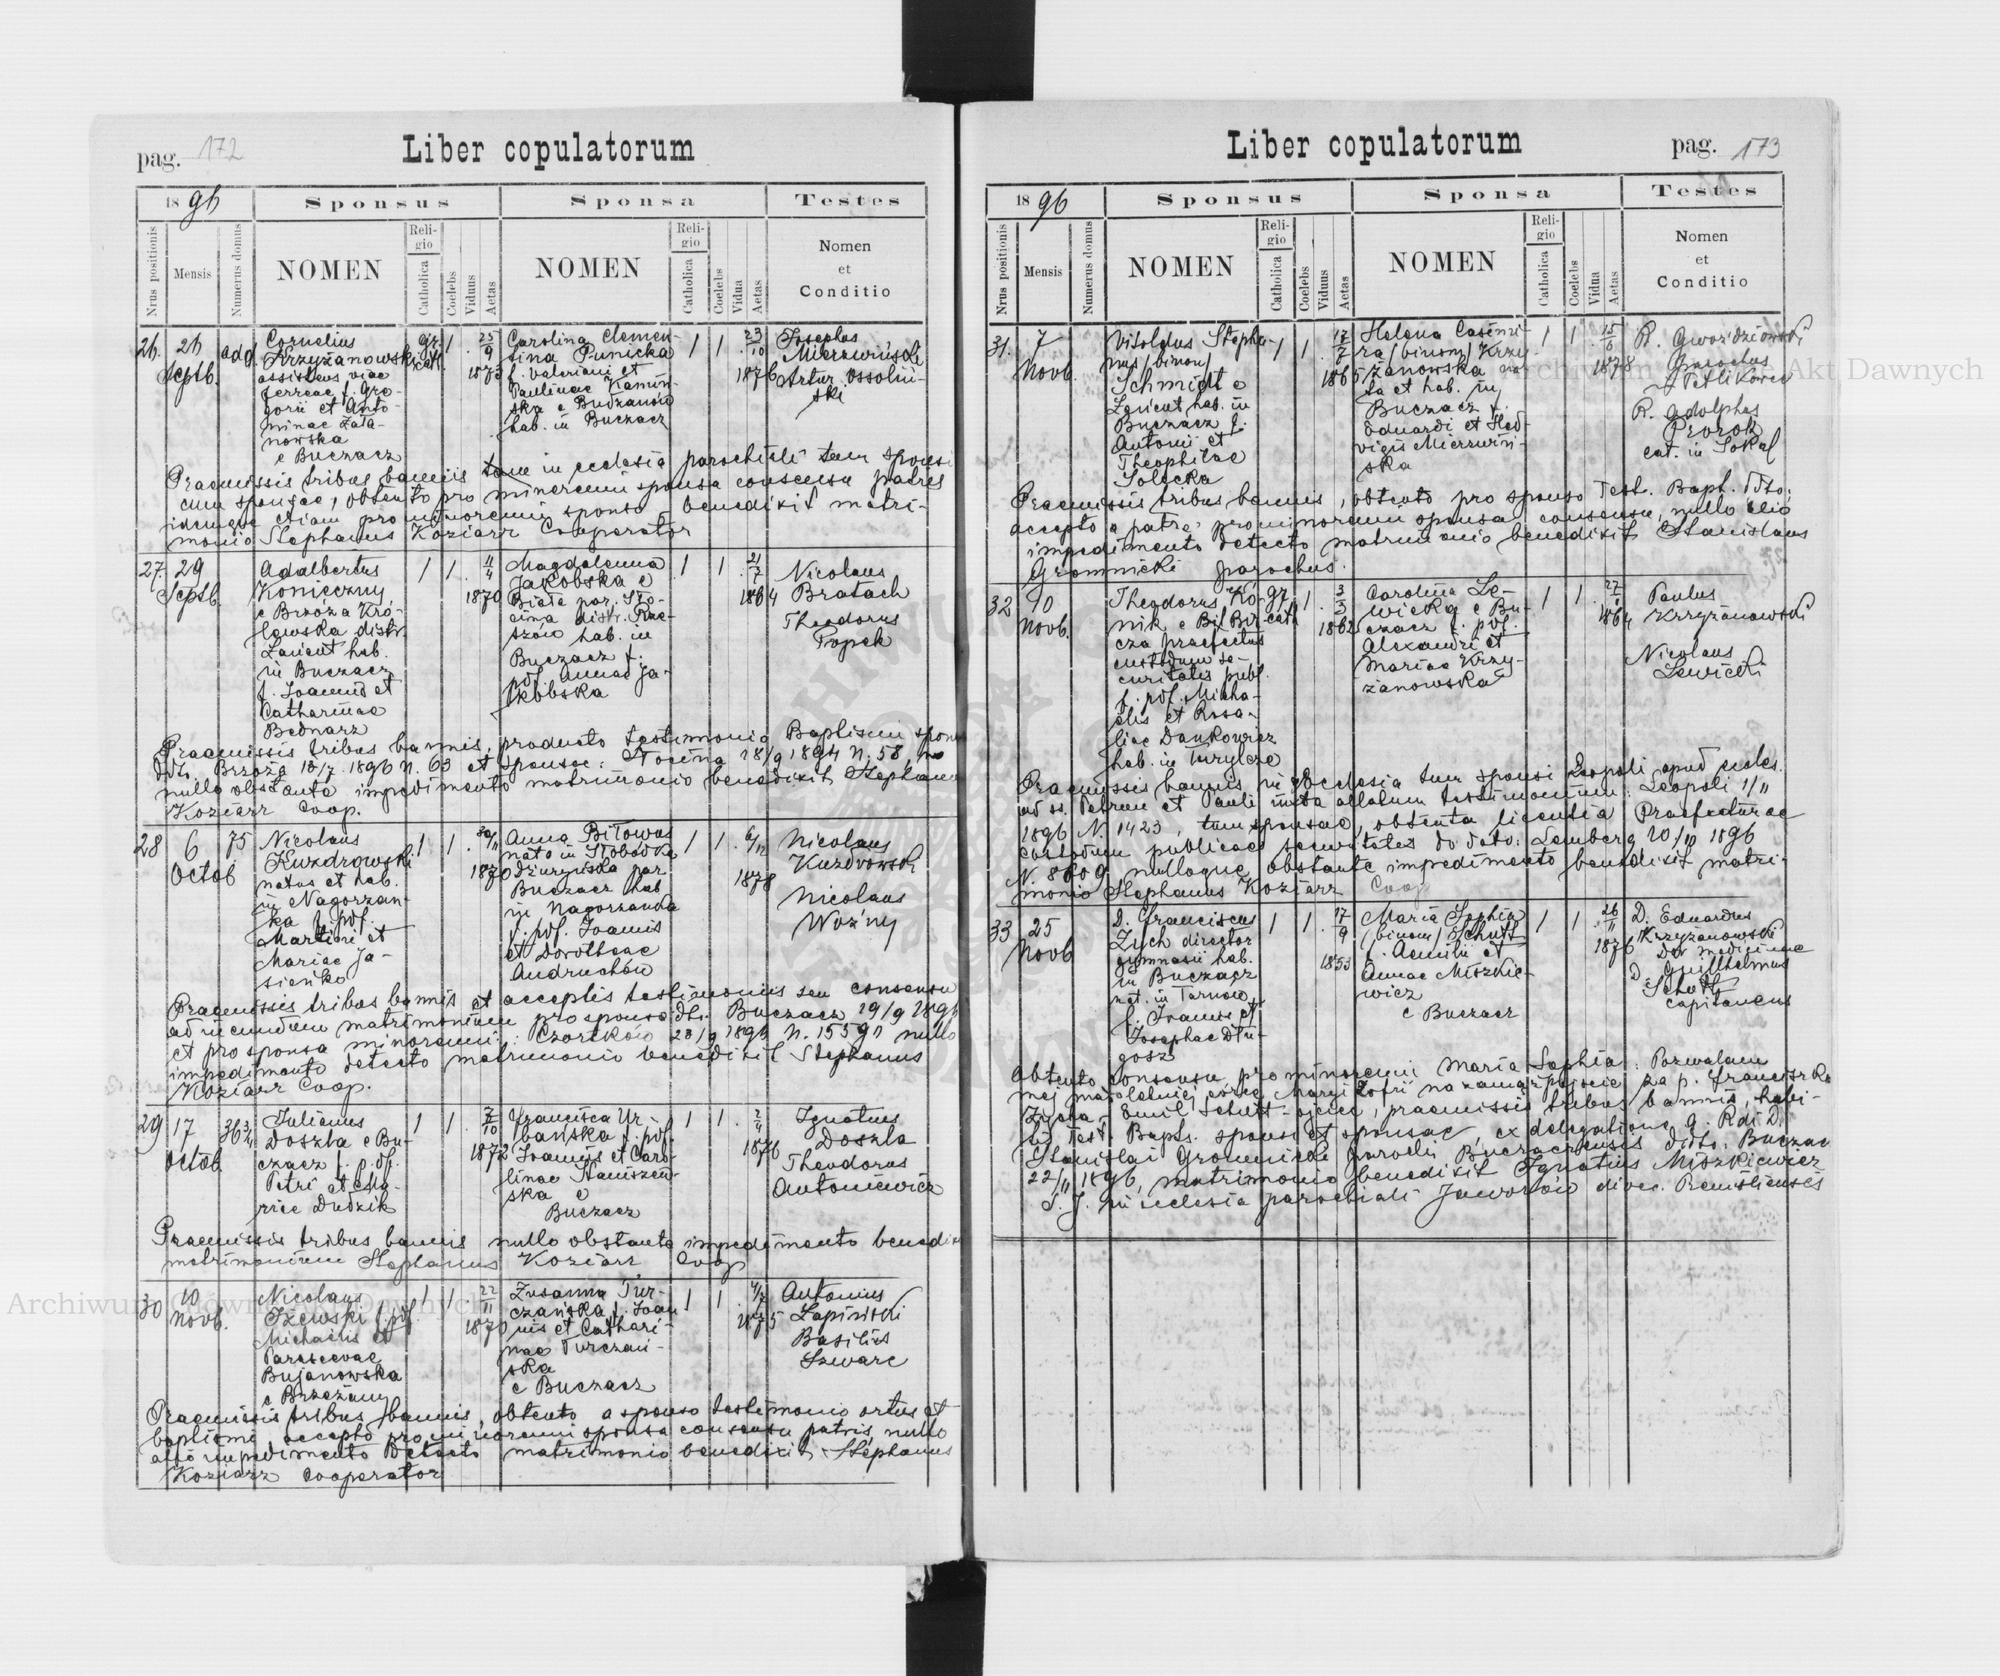 pag. 172
Liber copulatorum
1896
Sponsus
Sponsa
Testes
Nrus positionis
Mensis
Numerus domus
NOMEN
Religio
Catholica
Coelebs
Viduus
Aetas
NOMEN
Religio
Catholica
Coelebs
Vidua
Aetas
Nomen
et
Conditio
26. 26 Septb.
Cornelius
Krzyżanowski
assistens viae
ferreae f. Gre-
gorii et Anto-
ninae Zała-
nowska
e Buczacz
gr. cath. 1
25/9 1873
Carolina Clemen-
tina Punicka
f. Valeriani et
Paulinae Kamiń-
ska e Budzanów
hab. in Buczacz
1 1
23/10 1876
Josephus
Mierzwiński
Artur Ossoliń-
ski
Praemissis tribus bannis tam in ecclesia parochiali tum sponsi
cum sponsae, obtento pro minorenni sponsa consensu patris
idemque etiam pro minorenni sponso benedixit matri-
monio Stephanus Koziarz Cooperator
27. 29 Septb.
Adalbertus
Konieczny
e Brzoza Kró-
lewska distr.
Łańcut hab.
in Buczacz
f. Joannis et
Catharinae
Bednarz
1 1
11/4 1870
Magdalena
Jakobska e
Biała par. Sło-
cina distr. Rze-
szów hab. in
Buczacz f.
pdf. Annae Ja-
kobska
1 1
21/7 1864
Nicolaus
Bratach
Theodorus
Popek
Praemissis tribus bannis, producto testimonio Baptismi sponsi
ddto. Brzoza 18/7 1896 N. 63 et sponsae: Słocina 18/9 1894 N. 58,
nullo obstante impedimento matrimonio benedixit Stephanus
Koziarz Coop.
28 6 Octob 75
Nicolaus
Kuzdrowski
natus et hab.
in Nagorzan-
ka f. pdf.
Martini et
Mariae Ja-
sieńko
1 1
30/11 1870
Anna Biłowus
nata in Słobódka
Dżuryńska par.
Buczacz hab
in Nagorzanka
f. pdf. Joannis
et Dorotheae
Andruchów
1 1
6/12 1878
Nicolaus
Kuzdrowski
Nicolaus
Woźny
Praemissis tribus bannis et acceptis testimoniis seu consensu
ad ineundum matrimonium pro sponso dto. Buczacz 29/9 1896
et pro sponsa minorenni: Czortków 23/9 1896 N. 15591 nullo
impedimento detecto matrimonio benedixit Stephanus
Koziarz Coop.
29 17 Octob
Julianus
Doszla e Bu-
czacz f. pdf.
Petri et Ma-
riae Dudzik
1 1
7/10 1872
Francisca Ur-
bańska f. pdf.
Joannis et Caro-
linae Staniszew-
ska e
Buczacz
1 1
2/4 1876
Ignatius
Doszla
Theodorus
Antoniewicz
Praemissis tribus bannis nullo obstante impedimento benedixit
matrimonium Stephanus Koziarz Coop
30 10 Novb.
Nicolaus
Iżewski f. pdf.
Michaelis et
Parascevae
Bujanowska
e Brzeżany
1 1
22/11 1870
Zusanna Tur-
czańska f. Joan-
nis et Cathari-
nae Turczań-
ska
e Buczacz
1 1
4/7 1875
Antonius
Łapiński
Basilius
Szwarc
Praemissis tribus bannis, obtento a sponso testimonio ortus et
baptismi, accepto pro minorenni sponsa consensu patris, nullo
alio impedimento detecto matrimonio benedixit Stephanus
Koziarz Cooperator
Liber copulatorum
pag. 173
1896
Sponsus
Sponsa
Testes
Nrus positionis
Mensis
Numerus domus
NOMEN
Religio
Catholica
Coelebs
Viduus
Aetas
NOMEN
Religio
Catholica
Coelebs
Vidua
Aetas
Nomen
et
Conditio
31. 7 Novb.
Vitoldus Stepha-
nus /binom/
Schmidt e
Łańcut hab. in
Buczacz f.
Antonii et
Theophilae
Solecka
1 1
17/7 1865
Helena Casimi-
ra /binom/ Krzy-
żanowska na-
ta et hab. in
Buczacz f.
Eduardi et Hed-
vigis Mierzwiń-
ska
1 1
15/6 1878
R. Gwoździowski
parochus
Petlikowce
R. Adolphus
Prorok
cat. in Sokal
Praemissis tribus bannis, obtento pro sponso Test. Bapt. ddto.
accepto a patre pro minorenni sponsa consensu, nullo alio
impedimento detecto matrimonio benedixit Stanislaus
Gromnicki parochus.
32 10 Novb.
Theodorus Kó-
nik e
praefectus
custodum se-
curitatis publ.
f. pdf. Micha-
elis et Rosa-
liae Dankowicz
hab. in Turylcze
gr. cath 1
3/3 1862
Carolina Le-
wicka e Bu-
czacz f. pdf.
Alexandri et
Mariae Krzy-
żanowska
1 1
1864
Paulus
Krzyżanowski
Nicolaus
Lewicki
Praemissis bannis in ecclesia tum sponsi Leopoli apud eccles.
ad ss. Petrum et Pauli iuxta allatum testimonium: Leopoli 1/11
1896 N. 1423, tum sponsae, obtenta licentia Praefecturae
custodum publicae securitatis de dato: Lemberg 10/11 1896
N. 8609 nulloque obstante impedimento benedixit matri-
monio Stephanus Koziarz Coop
33 25 Novb
D. Franciscus
Zych director
gymnasii hab.
in Buczacz
nat. in Tarnów
f. Joannis et
Josephae Dłu-
gosz
1 1
17/9 1853
Maria Sophia
/binom/ Schutt
f. Aemilii et
Annae Miszkie-
wicz
e Buczacz
1 1
26/11 1876
D. Eduardus
Krzyżanowski
Dr medicinae
D. Guilhelmus
Schutt
capitaneus
Obtento consensu pro minorenni Maria Sophia: Pozwalam
mej małoletniej córce Maryi Zofii na zamążpójście za p. Franciszka
Zycha - Emil Schutt - ojciec, praemissis tribus bannis, habi-
tis Test. Bapt. sponsi et sponsae, ex delegatione q. Rdi D.
Stanislai Gromnicki parochi Buczacensis ddto. Buczacz
22/11 1896, matrimonio benedixit Ignatius Miszkiewicz
S. J. in ecclesia parochiali Jaworów dioec. Premisliensis
Archiwum Główne Akt Dawnych
Archiwum Główne Akt Dawnych